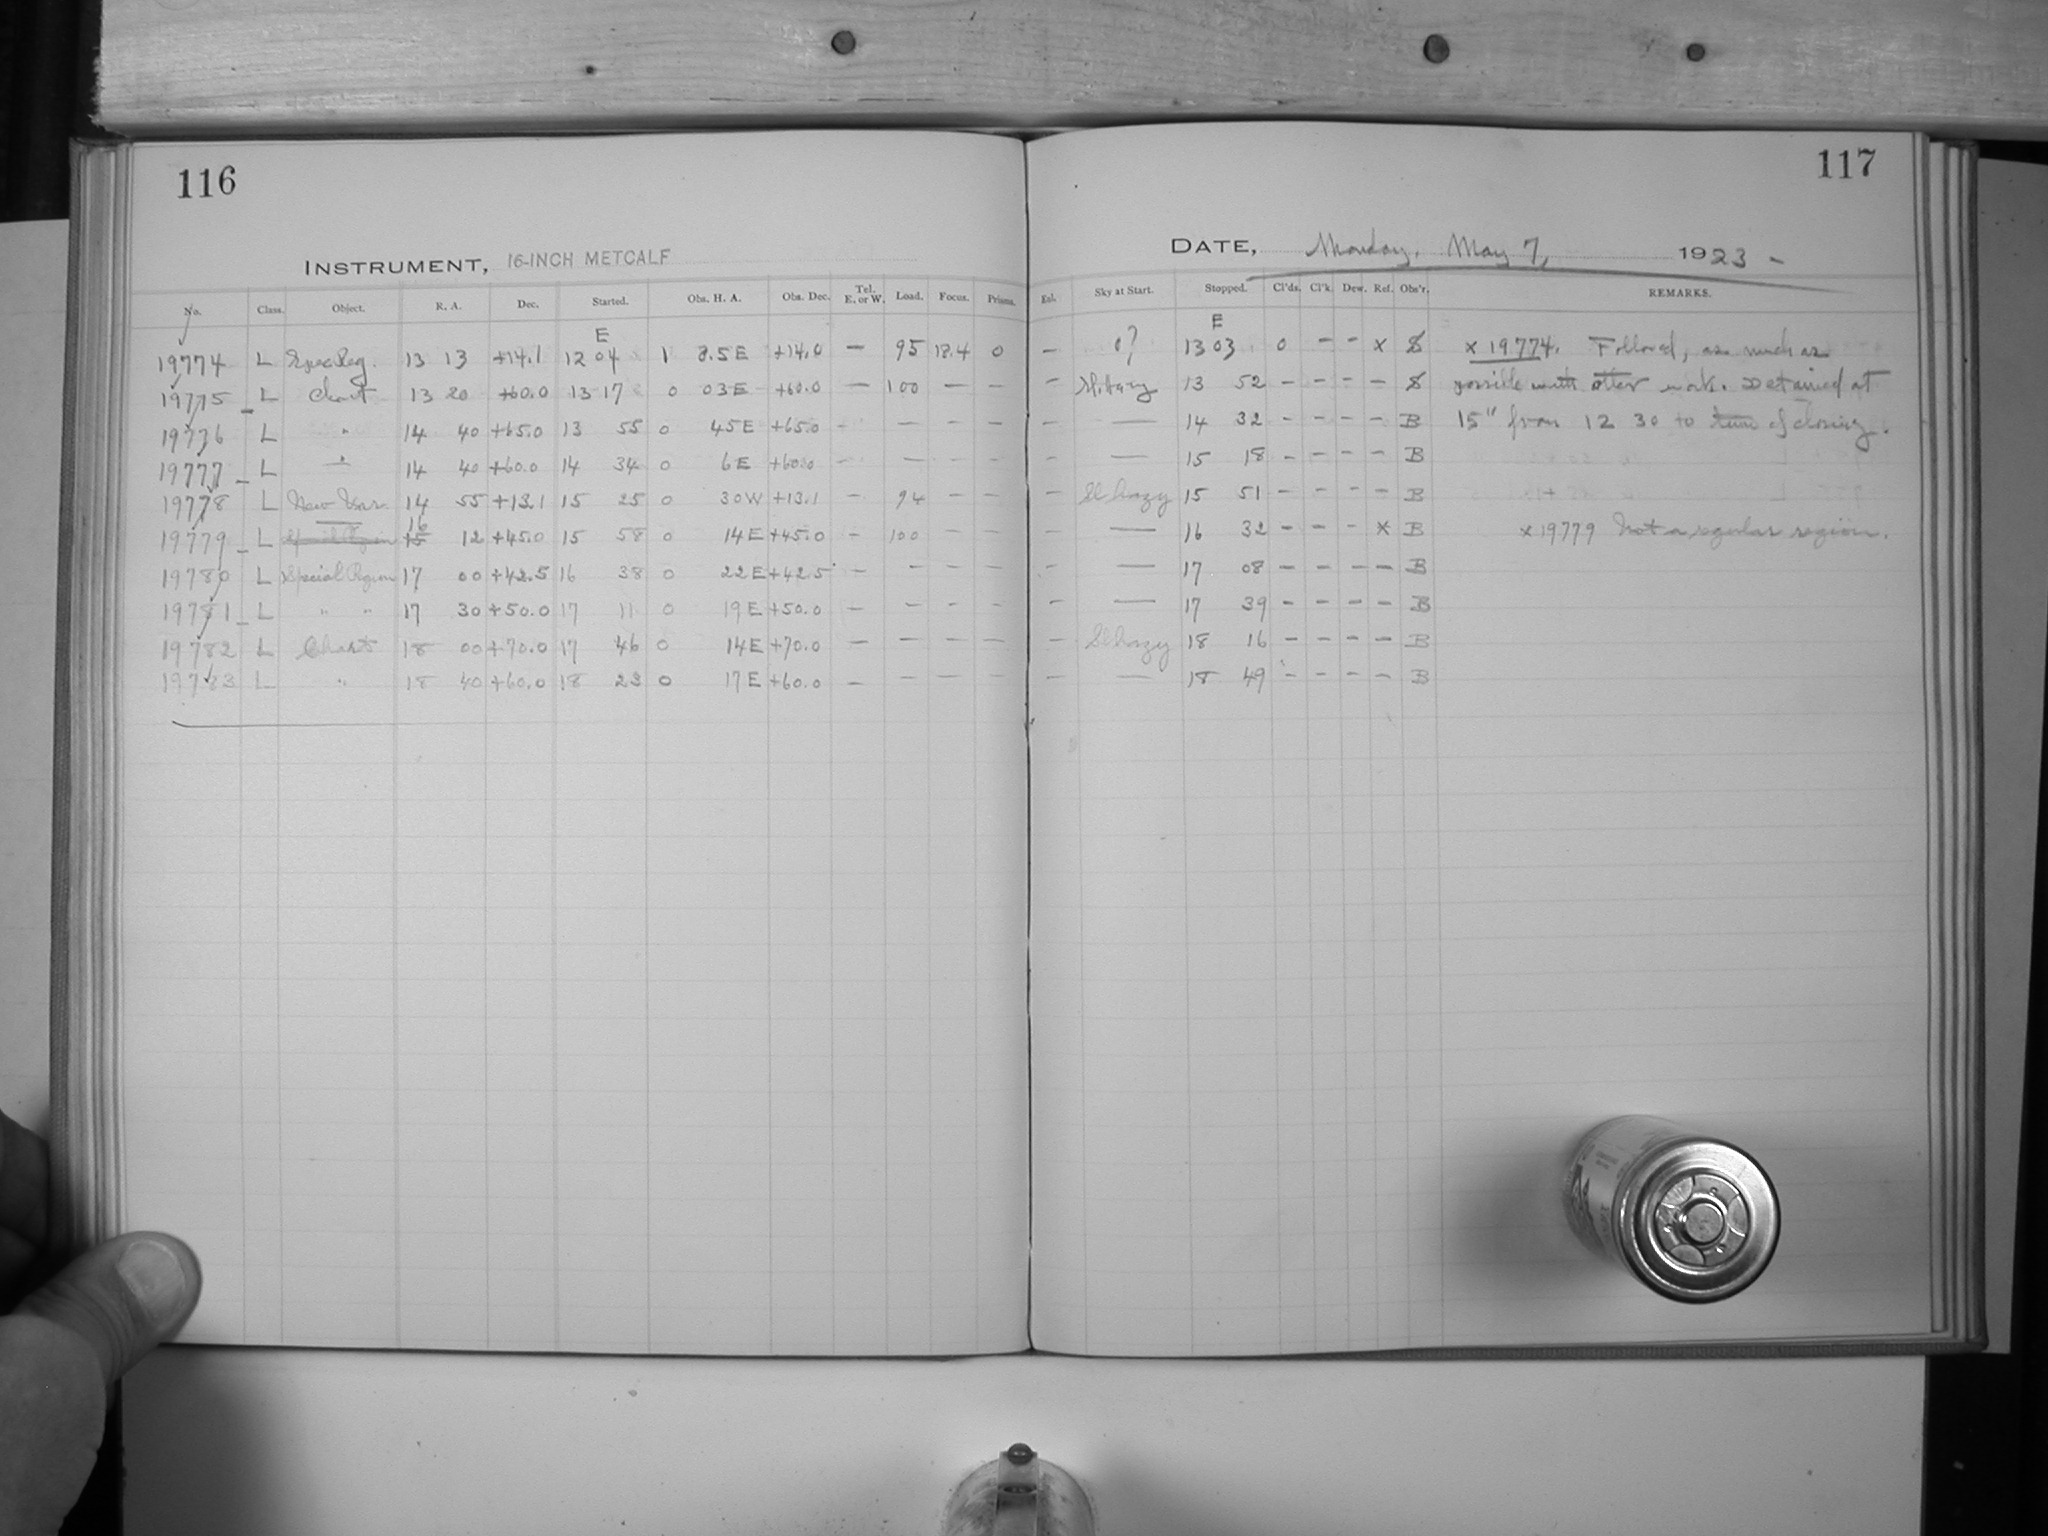 116
INSTRUMENT, 16-INCH METCALF
No. Class. Object. R. A. Dec. Started. Obs. H. A. Obs. Dec. Tel. E. or W. Load. Focus. Prisms.
E
19774 L Spec Reg. 13 13 +14.1 12 04 1 8.5 E +14.0 — 95 18.4 0
19775 L Chart 13 20 +60.0 13 17 0 03 E +60.0 — 100 — —
19776 L " 14 40 +65.0 13 55 0 45 E +65.0 - — — —
19777 L " 14 40 +60.0 14 34 0 6 E +60.0 - — — —
19778 L New Var. 14 55 +13.1 15 25 0 30 W +13.1 - 94 — —
19779 L Special Region 16 15 12 +45.0 15 58 0 14 E +45.0 - 100 — —
19780 L Special Region 17 00 +42.5 16 38 0 22 E +42.5 - — — —
19781 L " " 17 30 +50.0 17 11 0 19 E +50.0 — — — —
19782 L Chart 18 00 +70.0 17 46 0 14 E +70.0 — — — —
19783 L " 18 40 +60.0 18 23 0 17 E +60.0 — — — —
117
DATE, Monday, May 7, 1923 -
Sky at Start. Stopped. Cl'ds. Cl'k. Dew. Ref. Obs'r. REMARKS.
E
— 0? 13 03 0 - - x S x 19774. Followed, as much as
— Sl. Hazy 13 52 - - - - S possible with other work. Detained at
- — 14 32 - - - - B 15" from 12 30 to time of closing.
- — 15 18 - - - - B
— Sl hazy 15 51 - - - - B
- — 16 32 - - - x B x 19779 Not a regular region.
- — 17 08 - - - - B
- — 17 39 - - - - B
- Sl hazy 18 16 - - - - B
- — 18 49 - - - - B